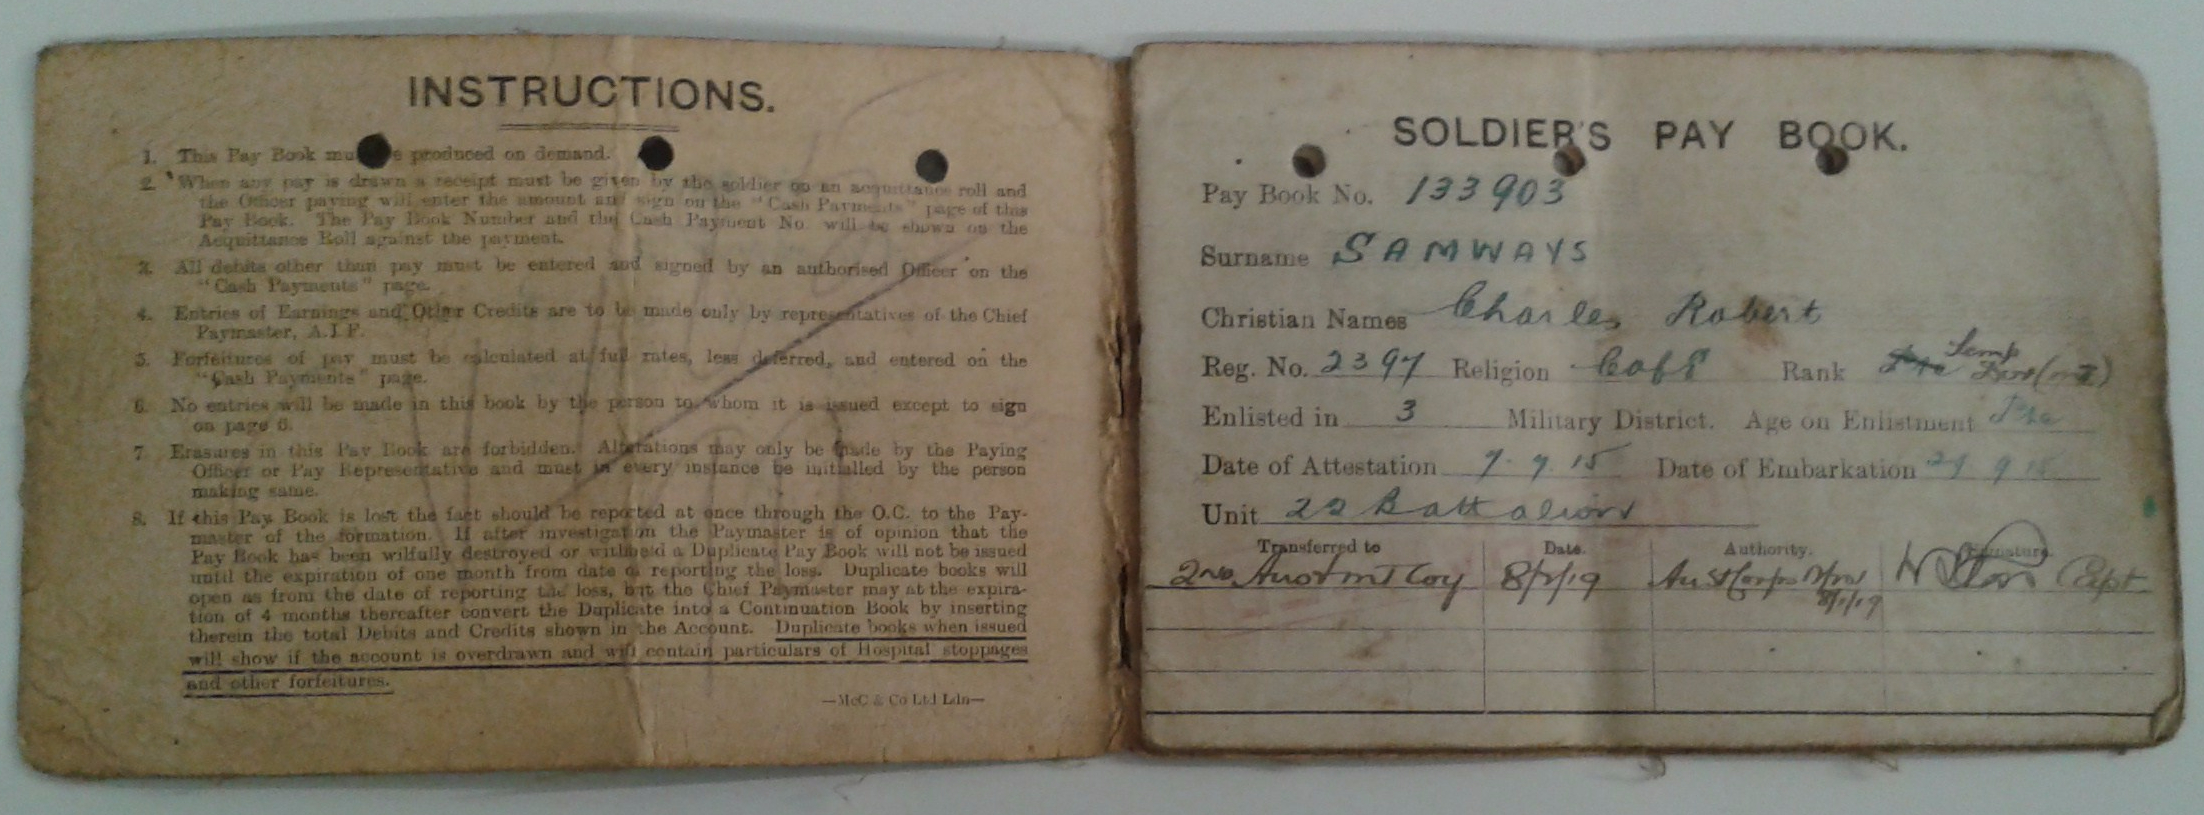 INSTRUCTIONS.
1. This Pay Book mu e produced on demand.
2. When any pay is drawn a receipt must be given by the soldier on an acquittance roll and
the Officer paying will enter the amount and sign on the "Cash Payments" page of this
Pay Book. The Pay Book Number and the Cash Payment No. will be shown on the
Acquittance Roll against the payment.
3. All debits other than pay must be entered and signed by an authorised Officer on the
"Cash Payments" page.
4. Entries of Earnings and Other Credits are to be made only by representatives of the Chief
Paymaster, A.I.F.
5. Forfeitures of pay must be calculated at full rates, less deferred, and entered on the
"Cash Payments" page.
6. No entries will be made in this book by the person to whom it is issued except to sign
on page 6.
7. Erasures in this Pay Book are forbidden. Alterations may only be made by the Paying
Officer or Pay Representative and must in every instance be initialled by the person
making same.
8. If this Pay Book is lost the fact should be reported at once through the O.C. to the Pay-
master of the formation. If after investigation the Paymaster is of opinion that the
Pay Book has been wilfully destroyed or withheld a Duplicate Pay Book will not be issued
until the expiration of one month from date of reporting the loss. Duplicate books will
open as from the date of reporting the loss, but the Chief Paymaster may at the expira-
tion of 4 months thereafter convert the Duplicate into a Continuation Book by inserting
therein the total Debits and Credits shown in the Account. Duplicate books when issued
will show if the account is overdrawn and will contain particulars of Hospital stoppages
and other forfeitures.
—McC & Co Ltd Ldn—
SOLDIER'S PAY BOOK.
Pay Book No. 133903
Surname SAMWAYS
Christian Names Charles Robert
Reg. No. 2397 Religion C of E Rank Pte Temp Dvr (MT)
Enlisted in 3 Military District. Age on Enlistment
Date of Attestation 7.7.15 Date of Embarkation 9 15
Unit 22 Battalion
Transferred to Date. Authority. Signature.
2nd Aust MT Coy 8/2/19 Aust Corps Capt